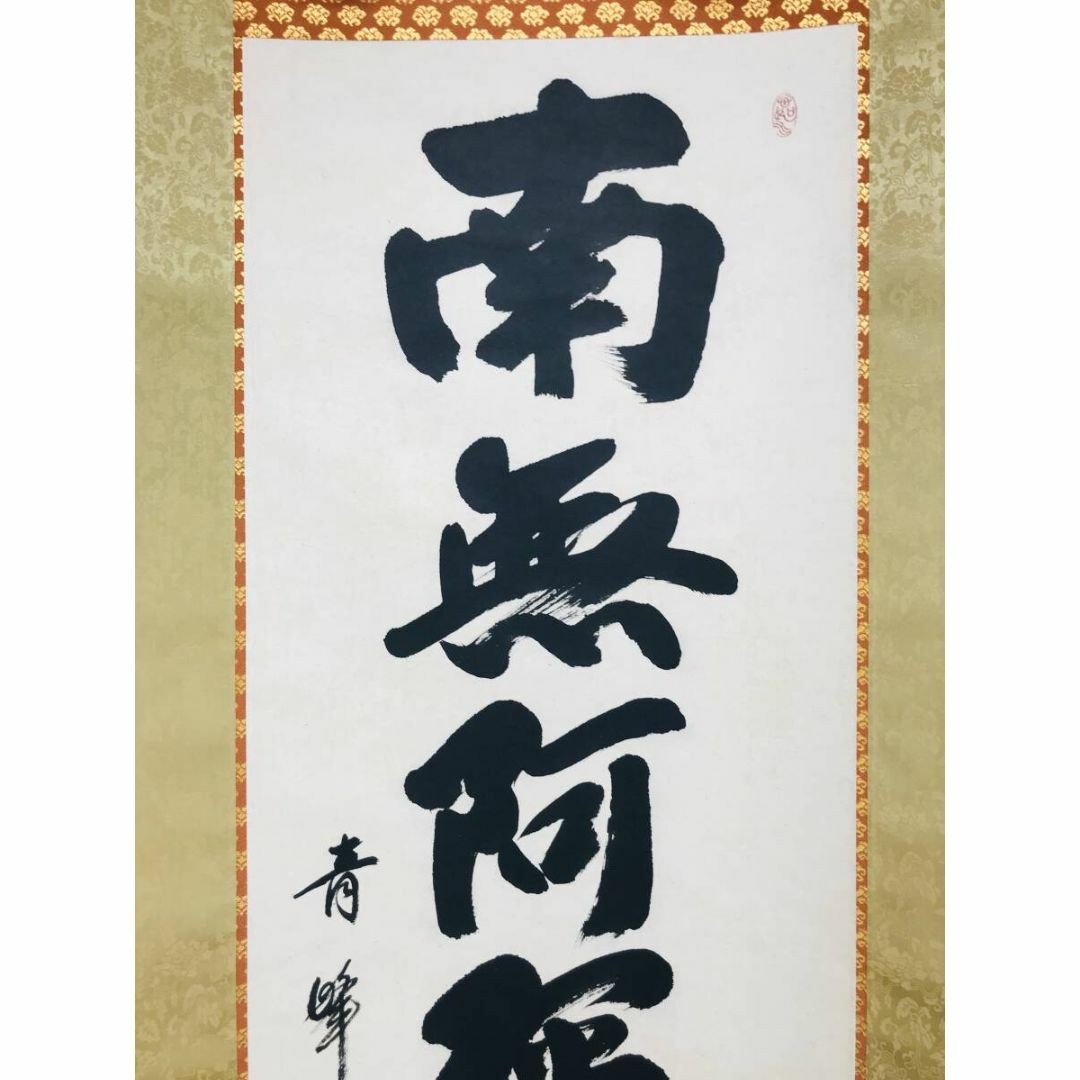 南無阿
青峰